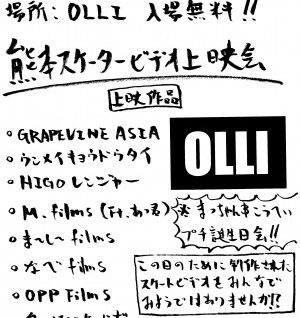 場所: OLLI 入場無料!!
熊本スケータービデオ上映会
上映作品
・GRAPEVINE ASIA
・ウンメイキョウドウタイ
・HIGOレンジャー
・M. films (Ft. あっ君)
・まーしー films
・なべ films
・OPP FilmS
OLLI
※まっちゃん&こうへい
プチ誕生日会!!
この日のために制作された
スケートビデオをみんなで